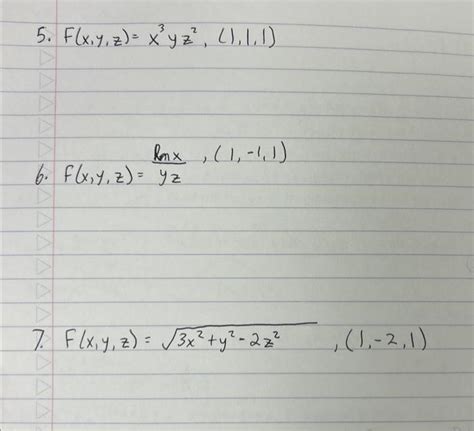 5. F(x,y,z) = x³yz², (1,1,1)
6. F(x,y,z) = ln x / yz, (1,-1,1)
7. F(x,y,z) = √(3x²+y²-2z²), (1,-2,1)